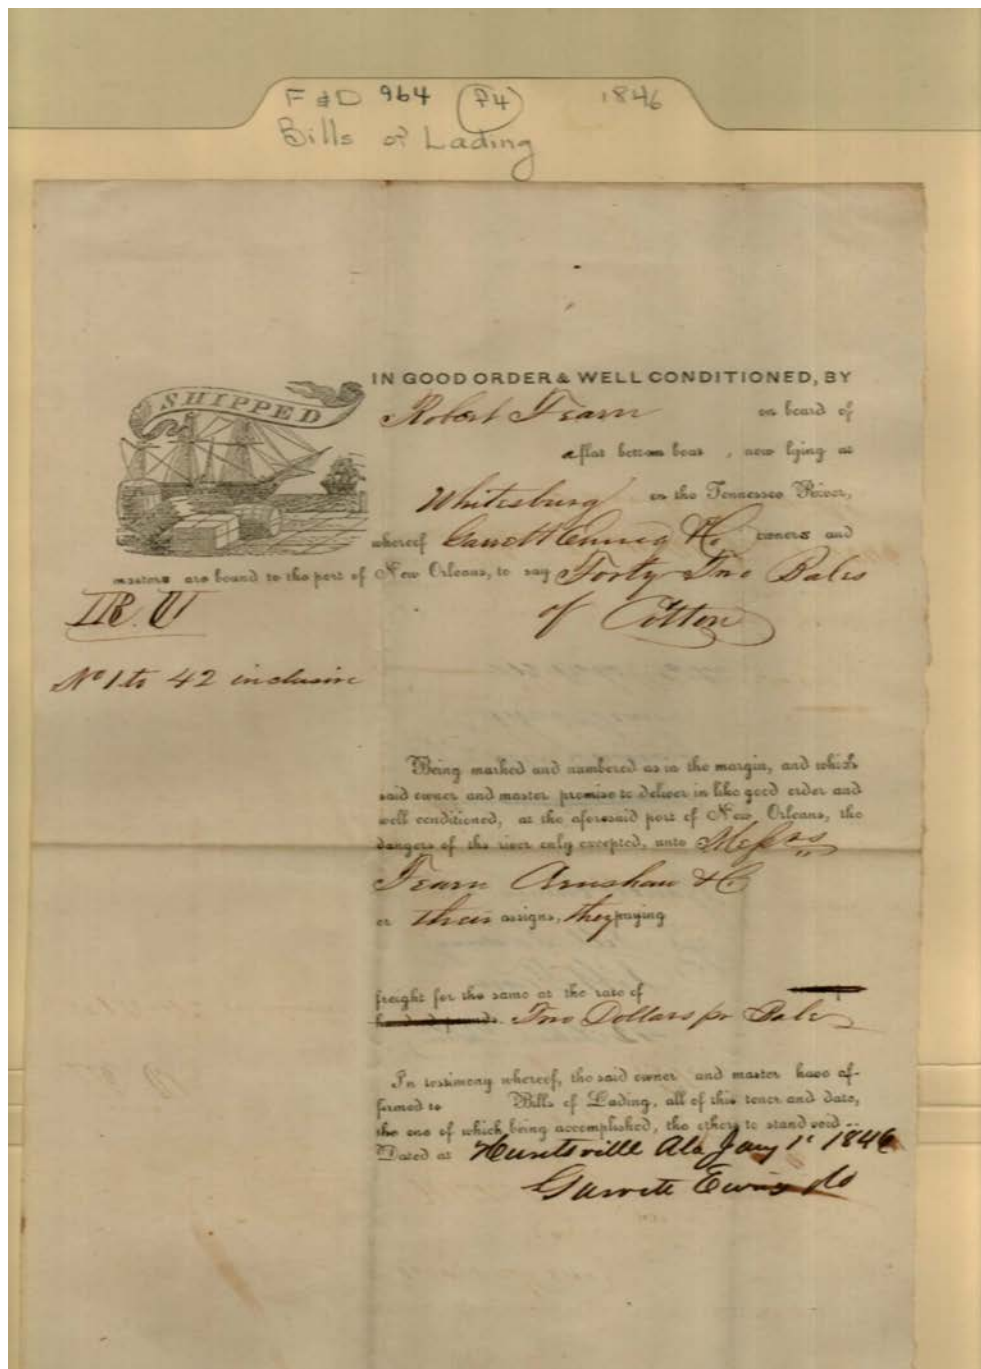 F & D 964 P4 1846
Bills of Lading
SHIPPED
IN GOOD ORDER & WELL CONDITIONED, BY
Robert Fearn on board of
a flat bottom boat, now lying at
Whitesburg on the Tennessee River,
whereof Garrett owners and
masters are bound to the port of New Orleans, to say Forty Two Bales
of Cotton
No 1 to 42 inclusive
Being marked and numbered as in the margin, and which
said owner and master promise to deliver in like good order and
well conditioned, at the aforesaid port of New Orleans, the
dangers of the river only excepted, unto Messrs
Fearn & Co
or their assigns, they paying
freight for the same at the rate of
Two Dollars pr Bale
In testimony whereof, the said owner and master have af-
firmed to Bills of Lading, all of this tenor and date,
the one of which being accomplished, the others to stand void..
Dated at Huntsville Ala Jany 1st 1846
Garrett Ewing